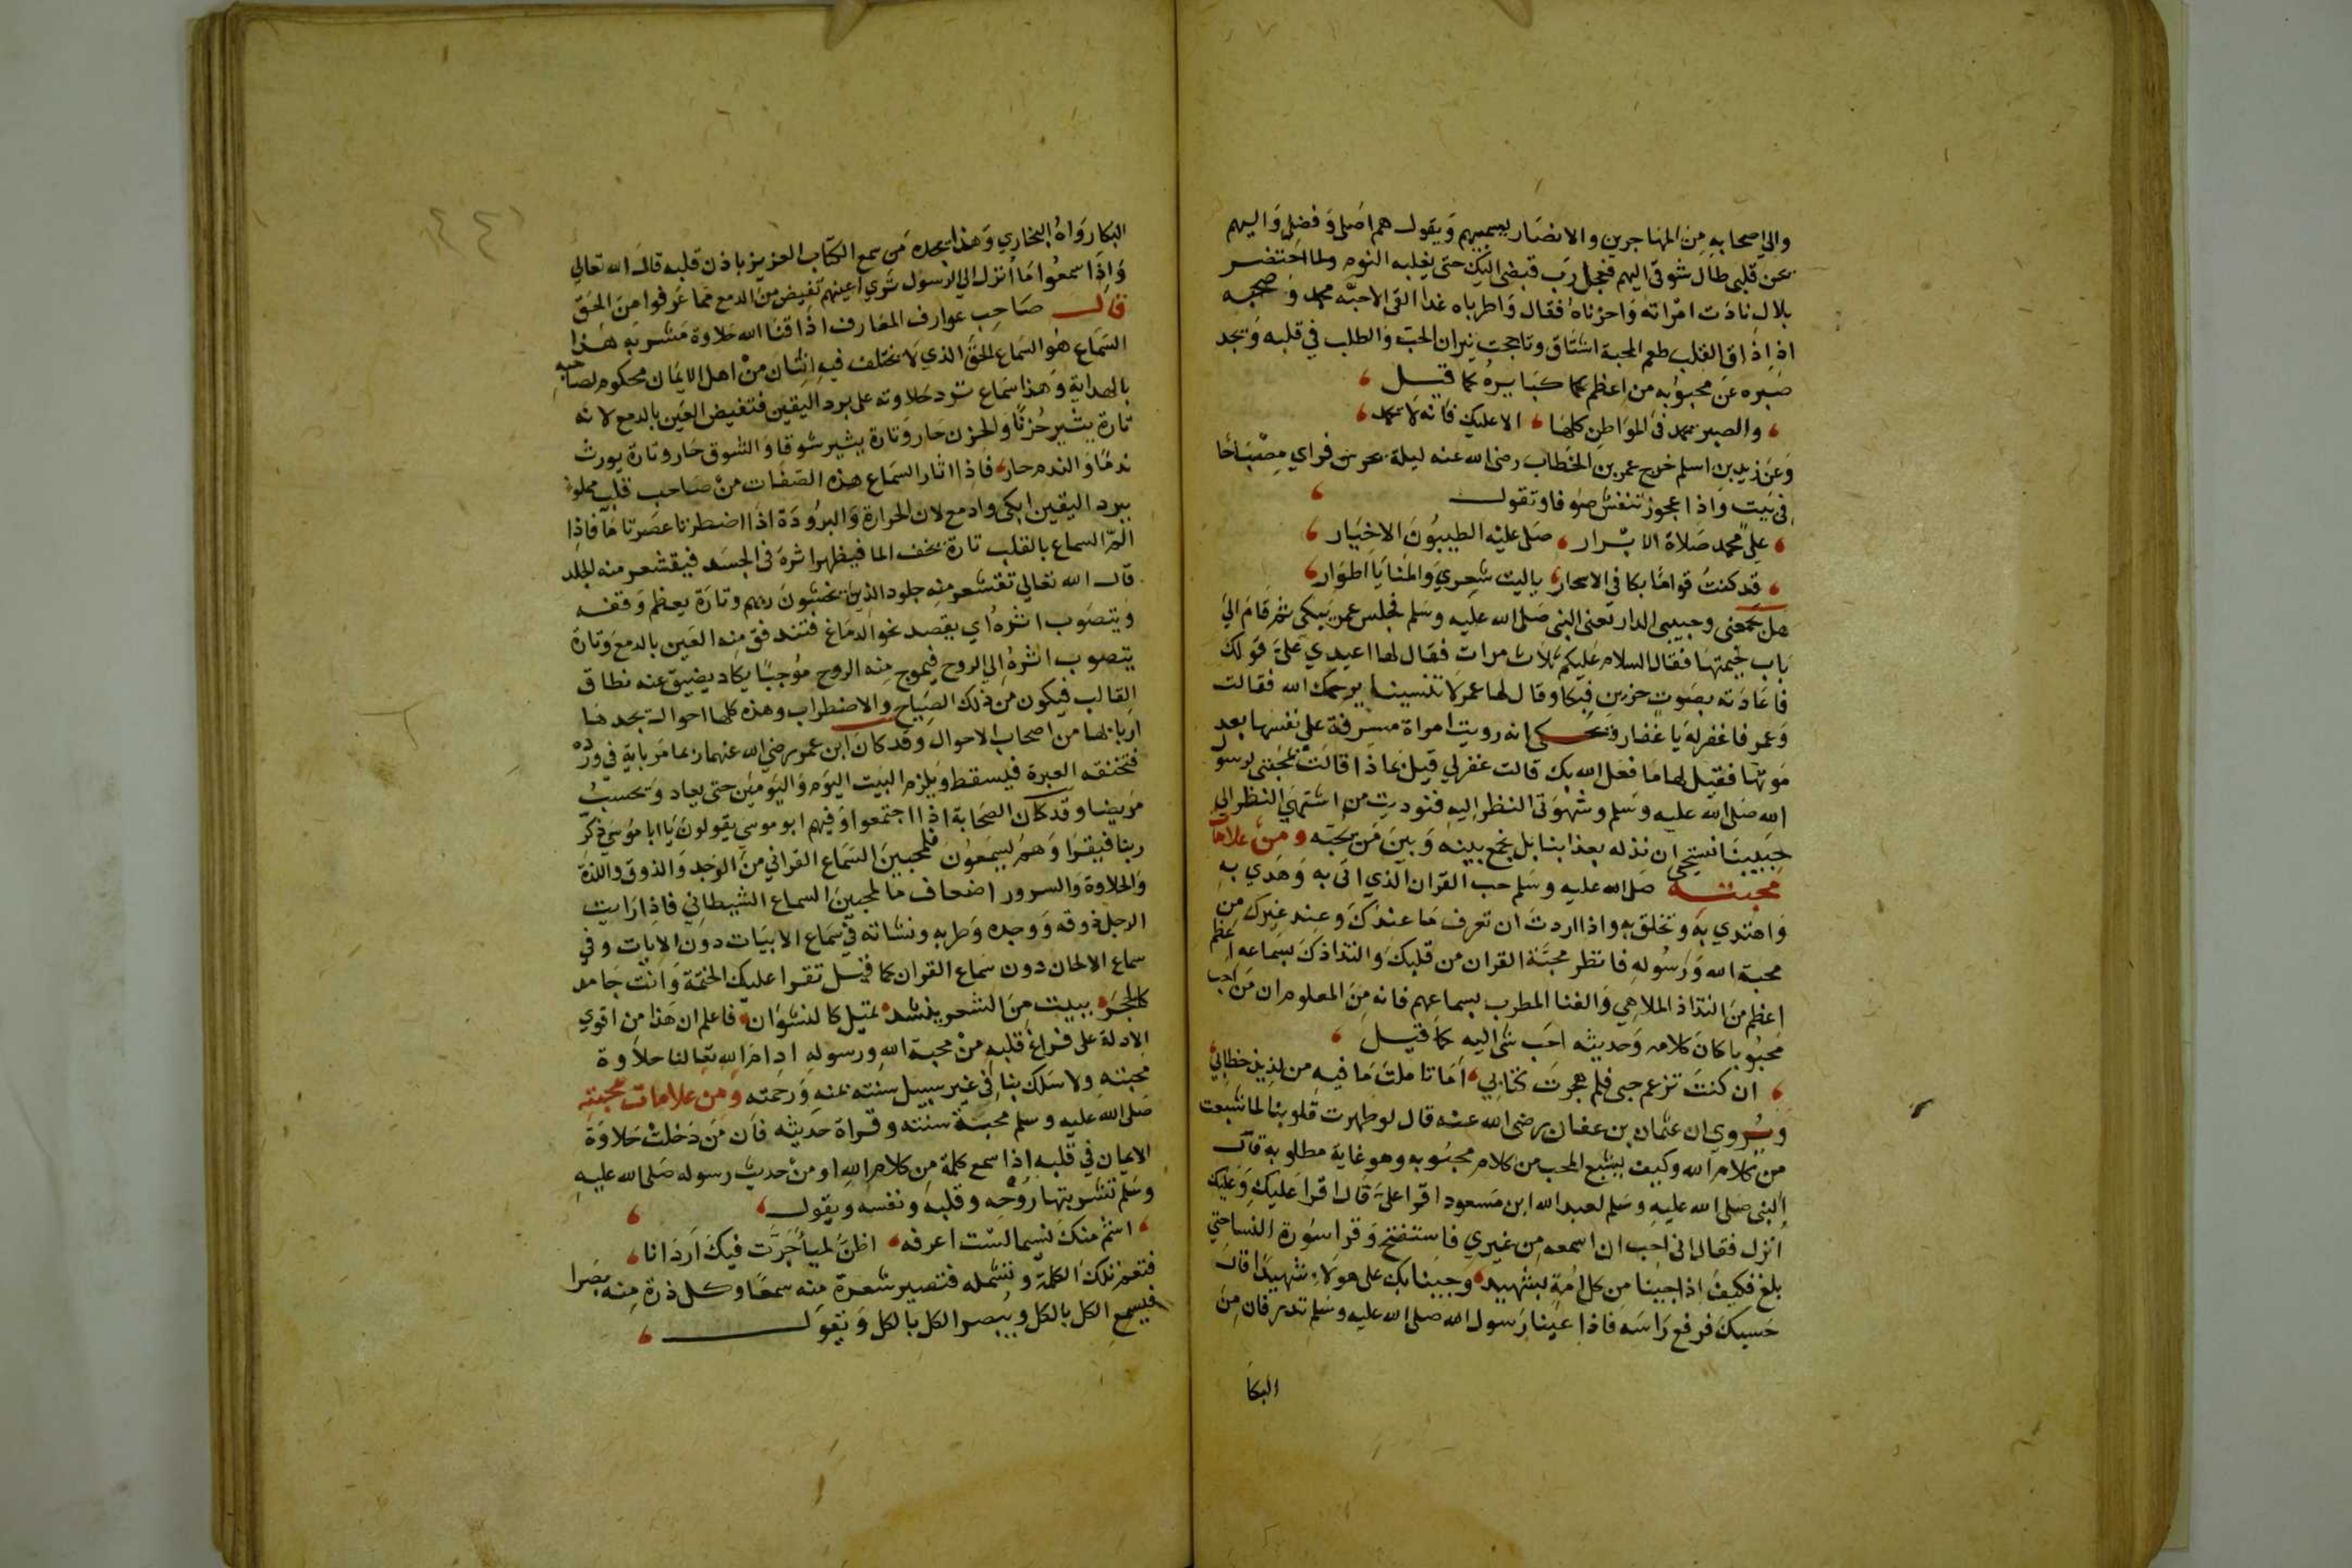 والي اصحابه من المهاجرين والانصار يسميهم ويقول هم اصلي وفضلي واليهم
يحن قلبي طال شوقي اليهم فعجل رب قبضي اليك حتى يغلبه النوم ولما احتضر
بلال نادت امراته واحزناه فقال واطرباه غدا القى الاحبه محمد وصحبه
اذ اذاق القلب طعم المحبة اشتاق وتاججت نيران الحب والطلب في قلبه ويجد
صبره عن محبوبه من اعظم كبايره كما قيل
والصبر يحمد في المواطن كلها الا عليك فانه لا يحمد
وعن زيد بن اسلم خرج عمر بن الخطاب رضي الله عنه ليلة يحرس فراي مصباحا
في بيت واذا عجوز تنفش صوفا وتقول
على محمد صلاة الابرار صلى عليه الطيبون الاخيار
قد كنت قواما بكا في الاسحار ياليت شعري والمنايا اطوار
هل يجمعني وحبيبي الدار تعني النبي صلى الله عليه وسلم فجلس عمر يبكي ثم قام الي
باب خيمتها فقال السلام عليكم ثلاث مرات فقال لها اعيدي علي قولك
فاعادته بصوت حزين فبكا وقال لها عمر لا تنسينا يرحمك الله فقالت
وعمر فاغفر له يا غفار ويحكى انه رويت امراة مسرفة على نفسها بعد
موتها فقيل لها ما فعل الله بك قالت غفر لي قيل بماذا قالت بمحبتي لرسول
الله صلى الله عليه وسلم وشهوتي النظر اليه فنوديت من اشتهي النظر الي
حبيبنا نستحي ان نذله بعذابنا بل نجمع بينه وبين من يحبه ومن علامات
محبته صلى الله عليه وسلم حب القران الذي اتى به وهدي به
واهتدي به وتخلق به واذا اردت ان تعرف ما عندك وعند غيرك من
محبة الله ورسوله فانظر محبة القران من قلبك والتذاذك بسماعه اعظم
اعظم من التذاذ الملاهي والغنا المطرب بسماعهم فانه من المعلوم ان من احب
محبوبا كان كلامه وحديثه احب شي اليه كما قيل
ان كنت تزعم حبي فلم هجرت كتابي اما تاملت ما فيه من لذيذ خطابي
ويروي ان عثمان بن عفان رضي الله عنه قال لو طهرت قلوبنا لما شبعت
من كلام الله وكيف يشبع المحب من كلام محبوبه وهو غاية مطلوبه قال
النبي صلى الله عليه وسلم لعبد الله ابن مسعود اقرا علي قال اقرا عليك وعليك
انزل فقال اني احب ان اسمعه من غيري فاستفتح وقرا سورة النسا حتي
بلغ فكيف اذا جينا من كل امة بشهيد وجينا بك على هولاء شهيدا قال
حسبك فرفع راسه فاذا عينا رسول الله صلى الله عليه وسلم تذرفان من
البكا
البكا رواه البخاري وهذا يجده من سمع الكتاب العزيز باذن قلبه قال الله تعالي
واذا سمعوا ما انزل الي الرسول تري اعينهم تفيض من الدمع مما عرفوا من الحق
قال صاحب عوارف المعارف اذاقنا الله حلاوة مشربه هذا
السماع هو السماع الحق الذي لا يختلف فيه اثنان من اهل الايمان محكوم لصاحبه
بالهداية وهذا سماع ترد حلاوته على برد اليقين فتفيض العين بالدمع لانه
تارة يثير حزنا والحزن حار وتارة يثير شوقا والشوق حار وتارة يورث
ندما والندم حار فاذا اثار السماع هذه الصفات من صاحب قلب مملو
ببرد اليقين ابكي وادمع لان الحرارة والبرودة اذا اضطرما عصرتا ما فاذا
الم السماع بالقلب تارة يخف الما فيظهر اثره في الجسد فيقشعر منه الجلد
قال الله تعالي تقشعر منه جلود الذين يخشون ربهم وتارة يعظم وقعه
ويتصوب اثره اي يقصد نحو الدماغ فتندفق منه العين بالدمع وتارة
يتصوب اثره الي الروح فيموج منه الروح موجا يكاد يضيق عنه نطاق
القالب فيكون من ذلك الصياح والاضطراب وهذه كلها احوال يجدها
اربابها من اصحاب الاحوال وقد كان ابن عمر رضي الله عنهما ربما مر باية في ورده
فتخنقه العبرة فيسقط ويلزم البيت اليوم واليومين حتى يعاد ويحسب
مريضا وقد كان الصحابة اذا اجتمعوا وفيهم ابو موسي يقولون يا ابا موسي ذكر
ربنا فيقرا وهم يسمعون فلمحبين السماع القراني من الوجد والذوق واللذة
والحلاوة والسرور اضعاف ما لمحبين السماع الشيطاني فاذا رايت
الرجل ذوقه ووجده وطربه ونشاته في سماع الابيات دون الايات وفي
سماع الالحان دون سماع القران كما قيل تقرا عليك الختمة وانت جامد
كالحجر وبيت من الشعر ينشد تميل كالنشوان فاعلم ان هذا من اقوي
الادلة على فراغ قلبه من محبة الله ورسوله ادام الله تعالنا حلاوة
محبته ولا سلك بنا في غير سبيل سنته بمنه ورحمته ومن علامات محبته
صلى الله عليه وسلم محبة سنته وقراة حديثه فان من دخلت حلاوة
الايمان في قلبه اذا سمع كلمة من كلام الله او من حديث رسوله صلى الله عليه
وسلم تشربتها روحه وقلبه ونفسه ويقول
اشم منك نسيما لست اعرفه اظن لميا جرت فيك اردانا
فتعم تلك الكلمة وتشمله فتصير شعرة منه سمعا وكل ذرة منه بصرا
فيسمع الكل بالكل ويبصر الكل بالكل ويقول